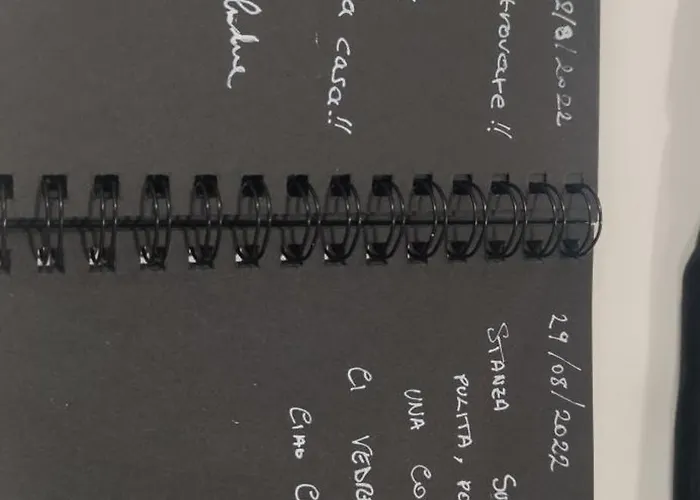 8/8/2022
trovare!!
a casa!!
29/08/2022
STANZA
PULITA,
UNA
CI VEDRE
CIAO C